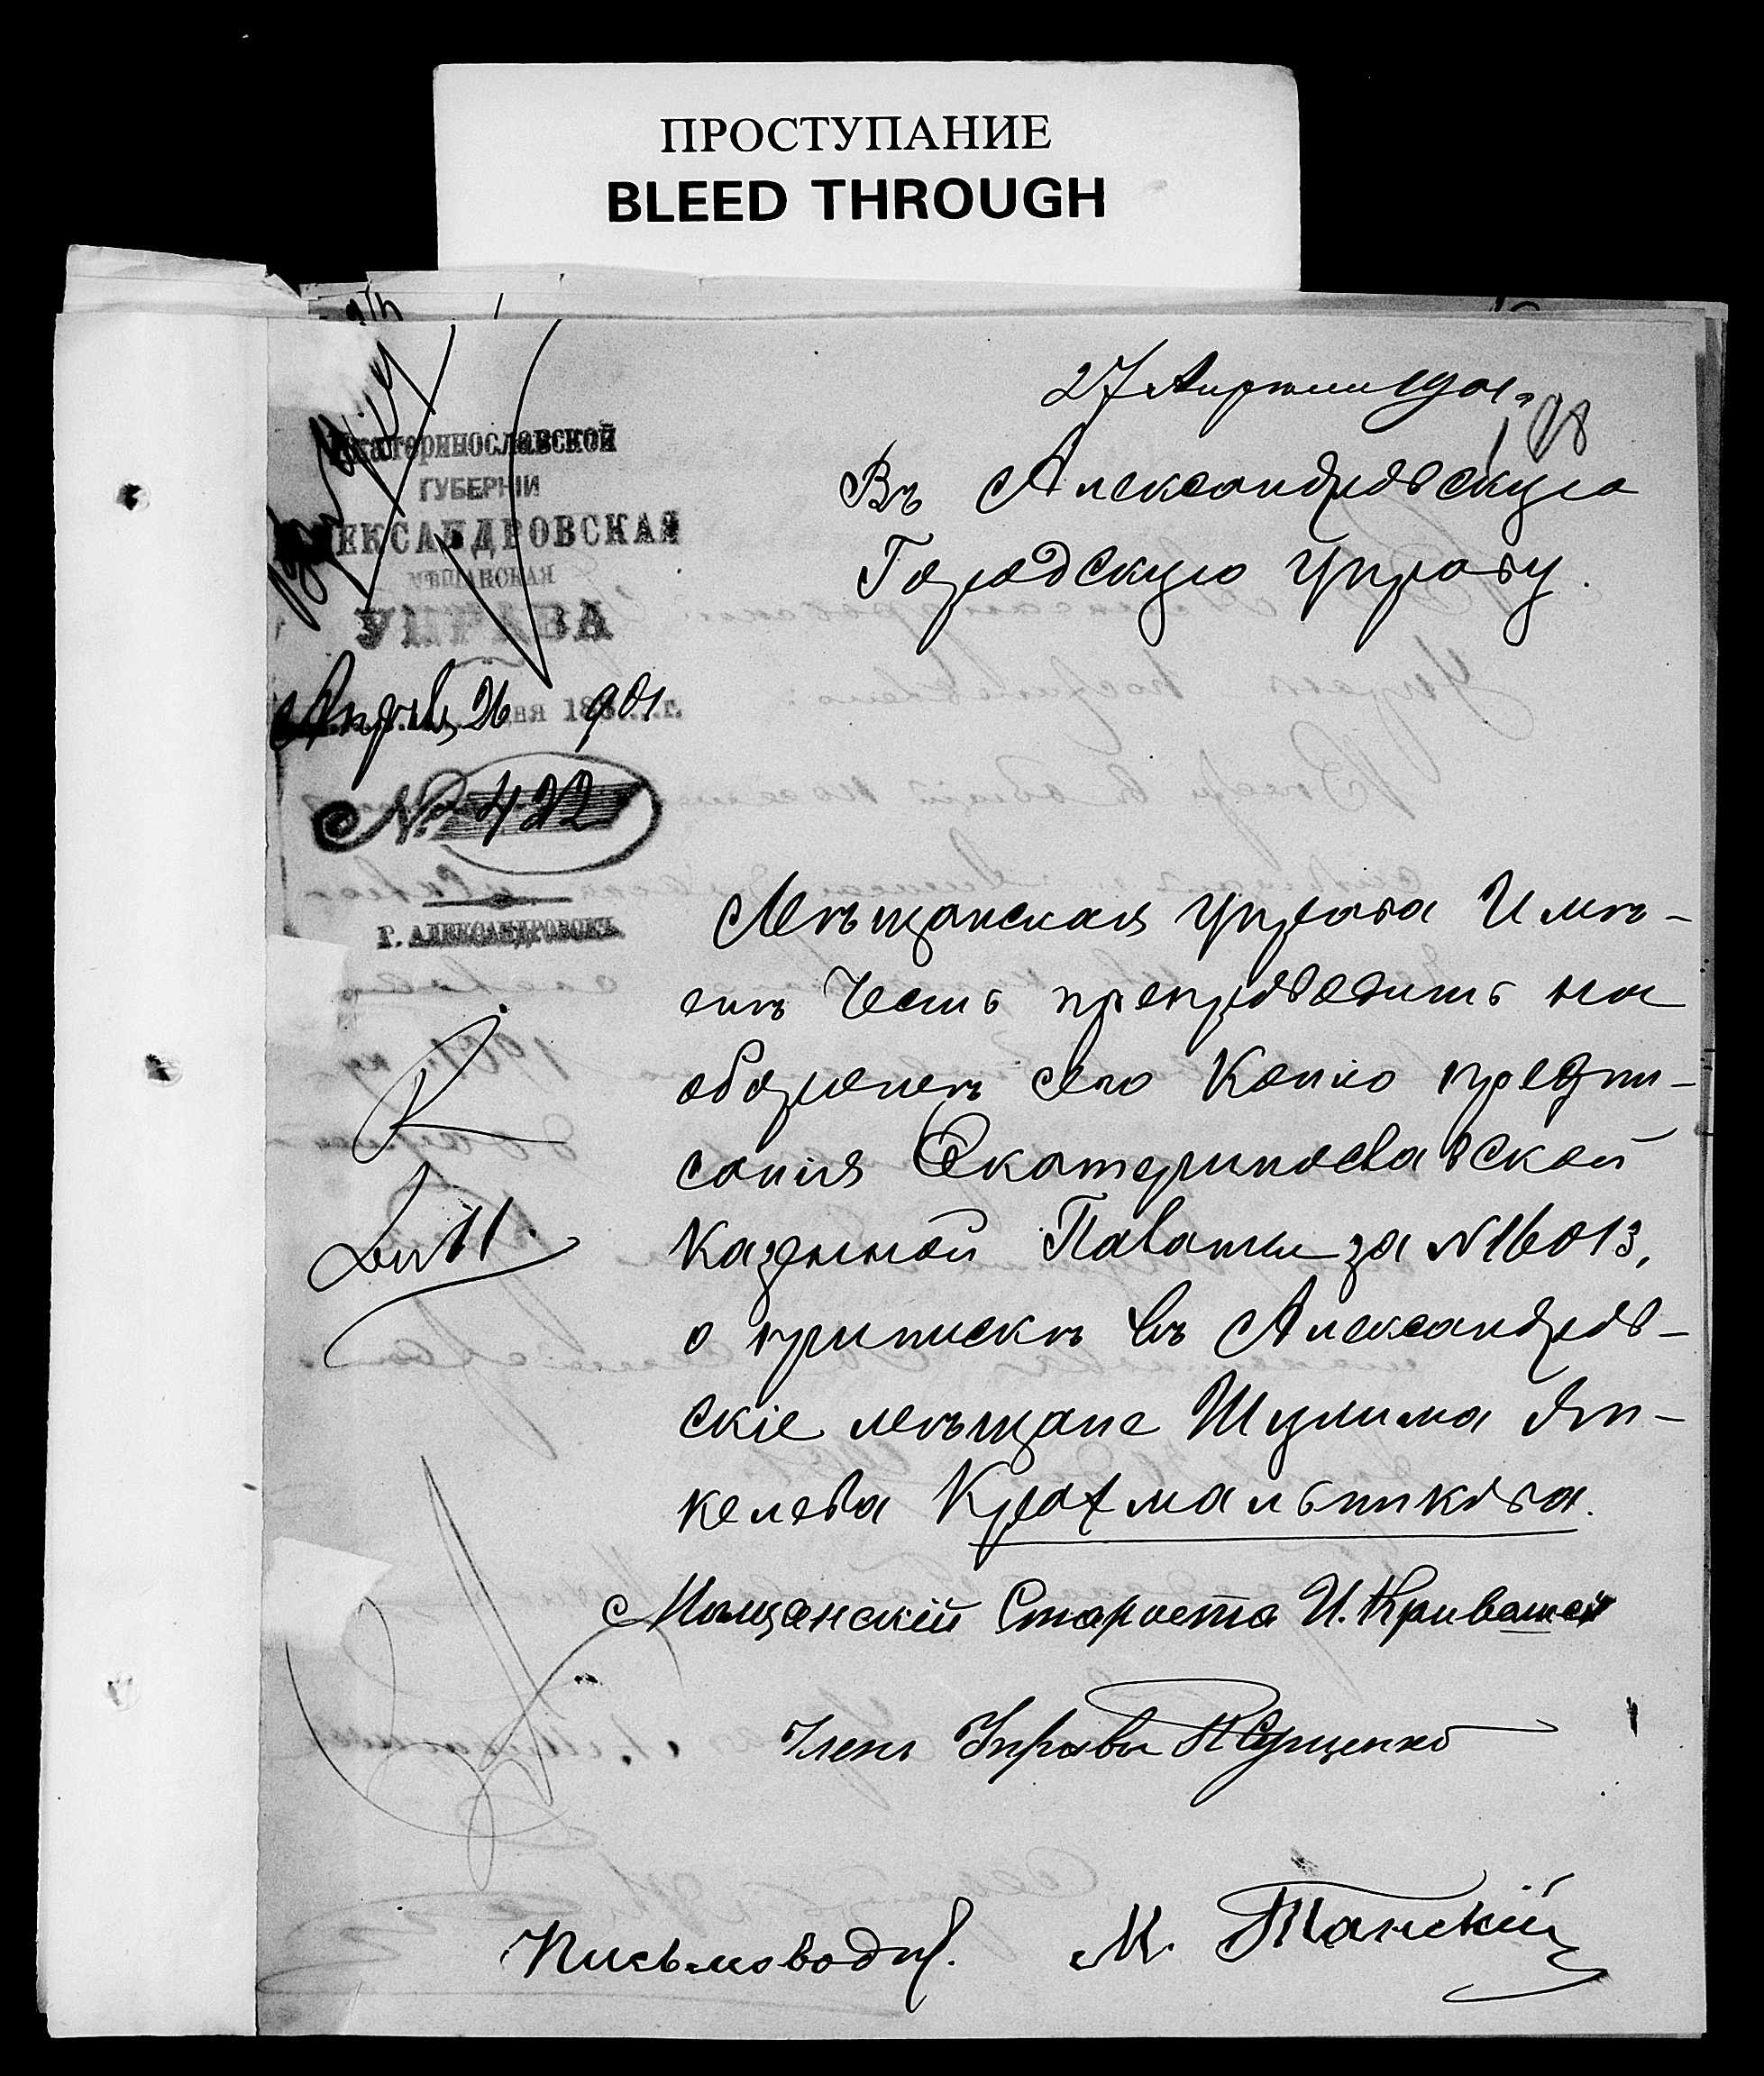 ПРОСТУПАНИЕ
BLEED THROUGH
27 Апрѣля 1901 г.
Екатеринославской
ГУБЕРНІИ
АЛЕКСАНДРОВСКАЯ
МѢЩАНСКАЯ
УПРАВА
Апрѣля 26 дня 1901 г.
№ 422
Г. АЛЕКСАНДРОВСКЪ
Въ Александровскую
Городскую Управу.
Мѣщанская Управа Имѣ-
етъ Честь препроводить на
оборотѣ сего Копію предпи-
санія Екатеринославской
Казенной Палаты за №16013,
о припискѣ въ Александров-
скіе мѣщане Шулима Ян-
келева Крахмальникова.
Мѣщанскій Староста И. Кривошея
Членъ Управы
Письмовод. М. Танскій